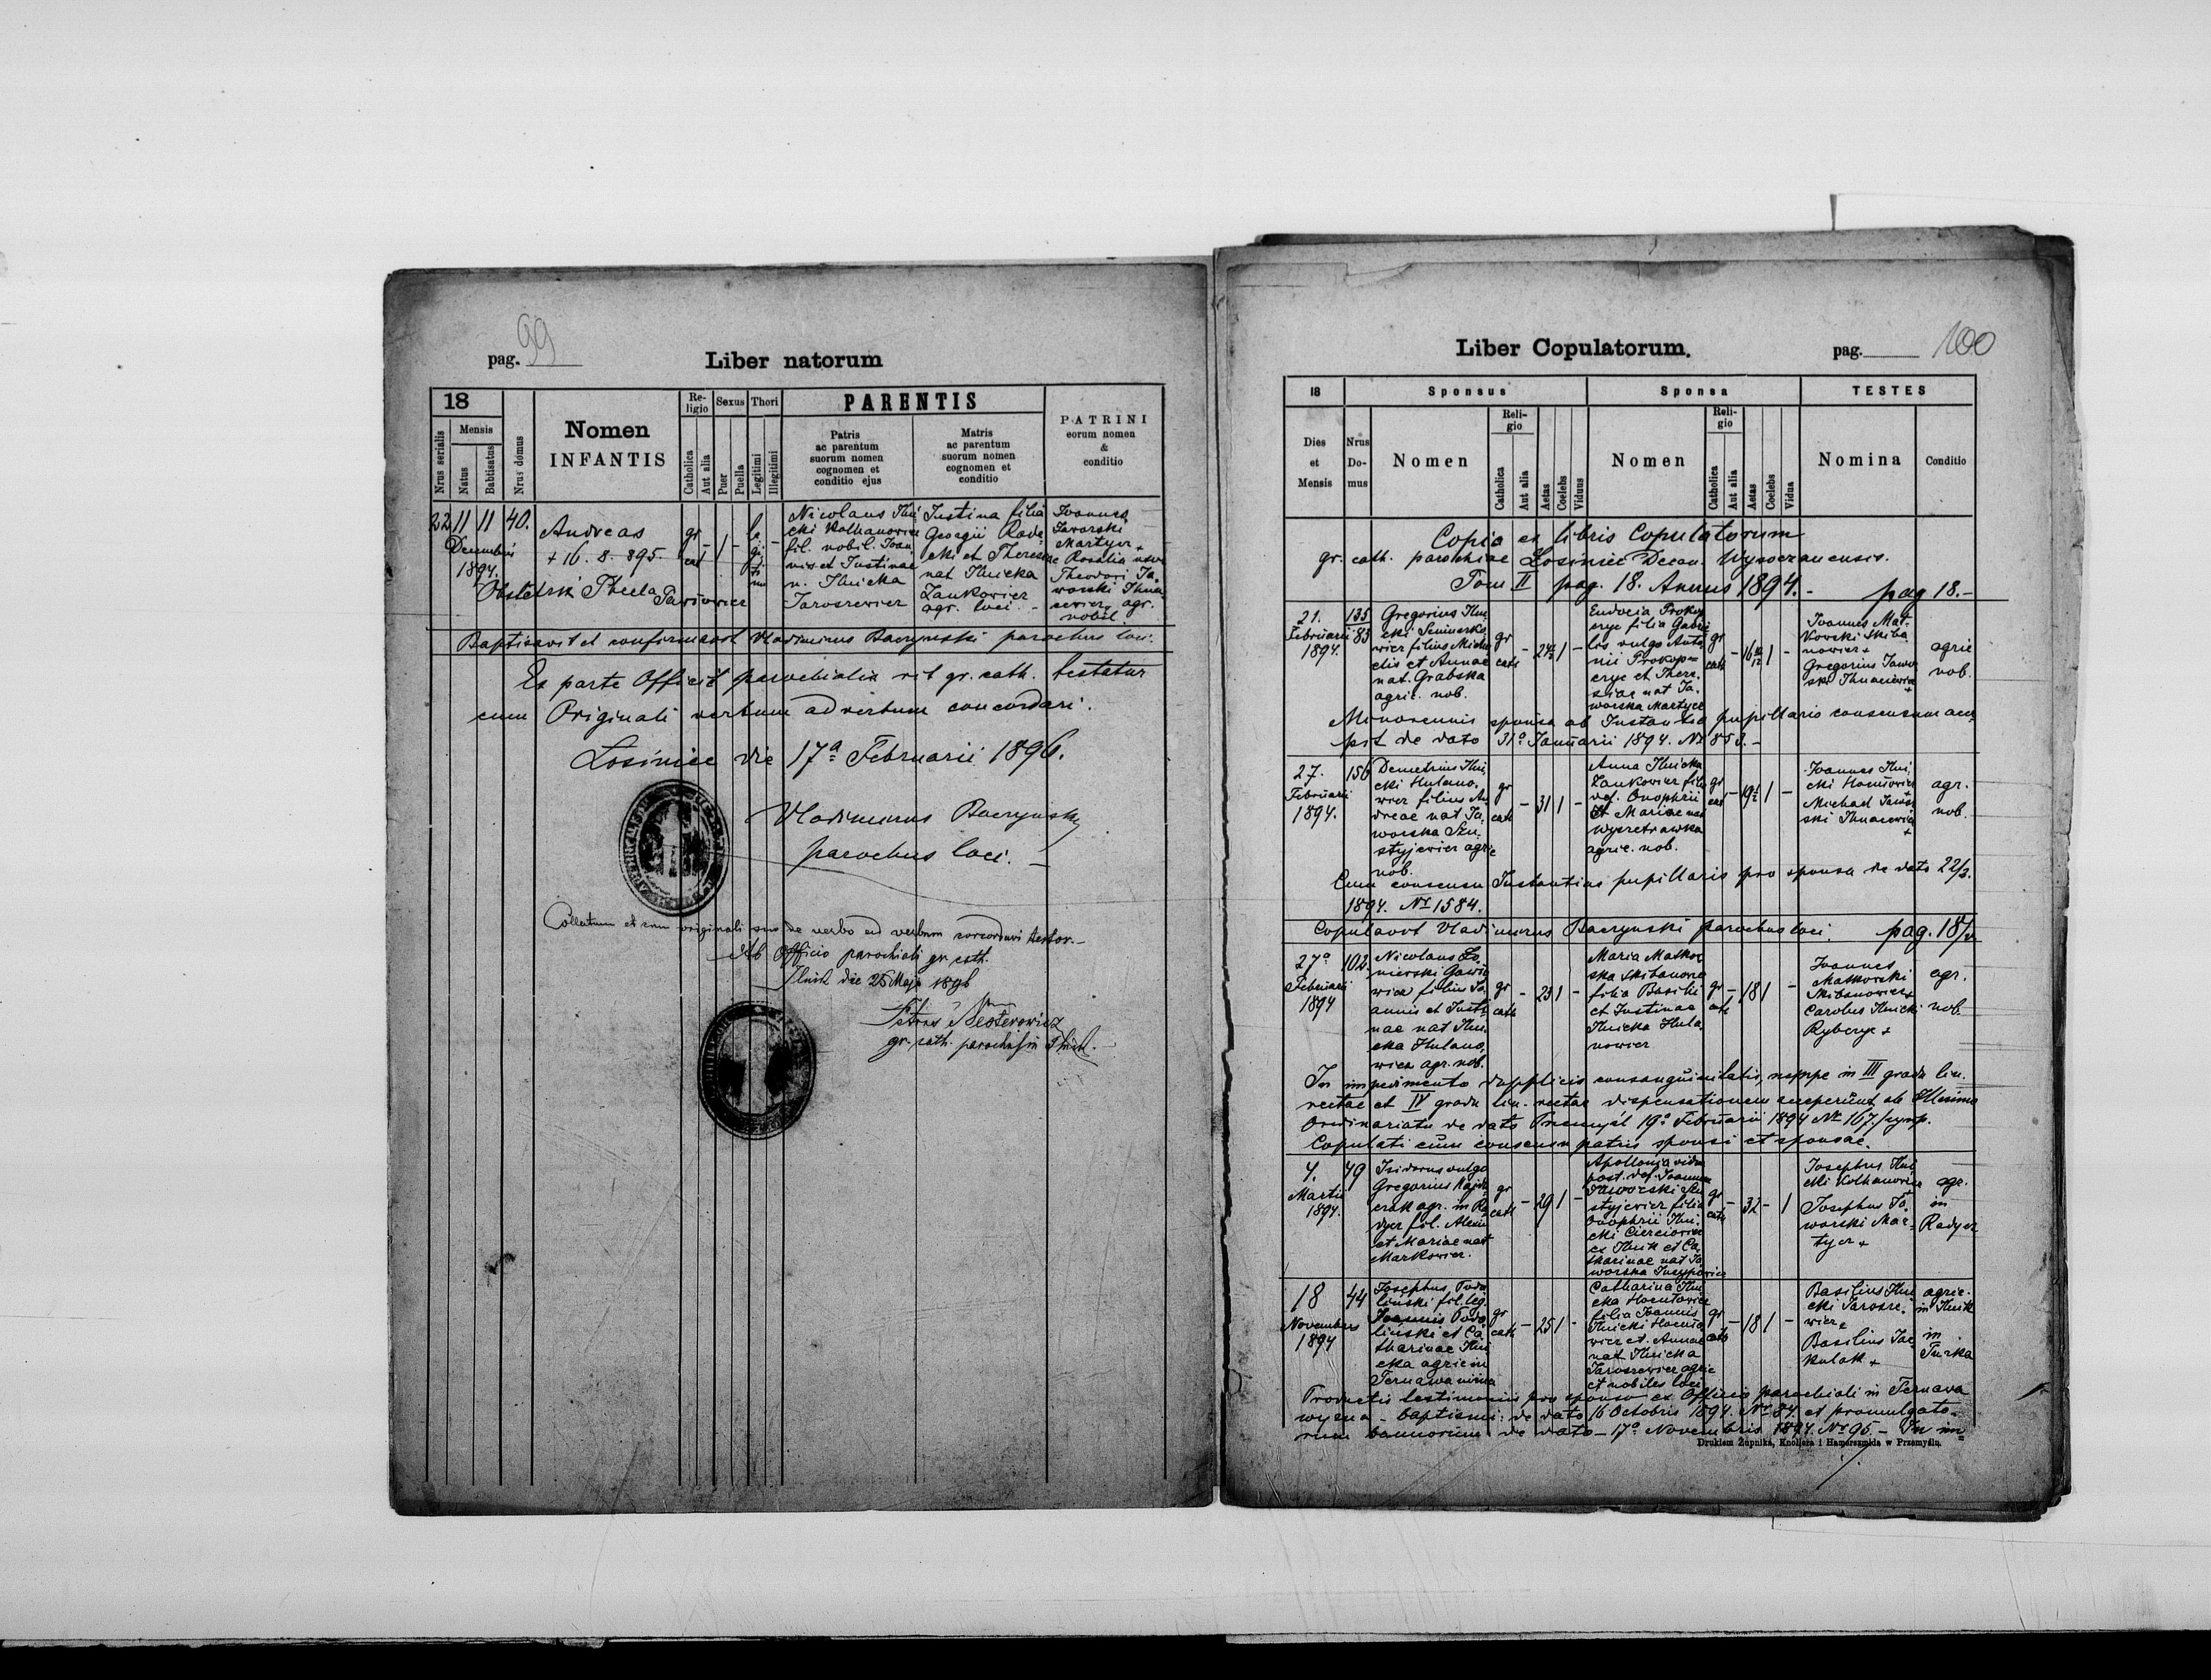 pag. 99
Liber natorum
18
Nrus serialis
Mensis
Natus
Babtisatus
Nrus domus
Nomen
INFANTIS
Re-
ligio
Catholica
Aut alia
Sexus
Puer
Puella
Thori
Legitimi
Illegitimi
PARENTIS
Patris
ac parentum
suorum nomen
cognomen et
conditio ejus
Matris
ac parentum
suorum nomen
cognomen et
conditio
PATRINI
eorum nomen
&
conditio
22 11 11 40.
Decembris
1894.
Andreas
+ 16. 8. 895.
Obstetrix Thecla
gr
cat
- 1 -
le
gi
ti
mi
-
Nicolaus Ilni
cki Kolhanowicz
fil. nobil. Joan
nis et Justinae
n. Ilnicka
Jaroszewicz
Justina filia
Georgii Rade
cki et Theresiae
nat Ilnicka
Zankowicz
agr. loci. -
Joannes
Jaworski
Martycz +
Rosalia uxor
Theodori Ja-
worski Ihna
cewicz agr.
nobil.
Baptisavit et confirmavit Vladimirus Baczynski parochus loci.
Ex parte Officii parochialis rit gr. cath. testatur
cum Originali verbum ad verbum concordari.
Łosiniec die 17ª Februarii 1896.
Vladimirus Baczynski
parochus loci. -
Collatum et cum originali suo de verbo ad verbum concordari testor. -
Ab Officio parochiali gr. cath.
Ilnik die 26 Maji 1896
Petrus Nesterowicz
gr. cath. parochus in Ilnik. -
Liber Copulatorum.
pag. 100
18
Dies
et
Mensis
Nrus
Do-
mus
Sponsus
Nomen
Reli-
gio
Catholica
Aut alia
Aetas
Coelebs
Viduus
Sponsa
Nomen
Reli-
gio
Catholica
Aut alia
Aetas
Coelebs
Vidua
TESTES
Nomina
Conditio
Copia ex libris Copulatorum
gr. cath. parochiae Łosiniec Decan. Wysoczanensis.
Tom II pag. 18. Annus 1894. - pag 18. -
21.
Februarii
1894.
135
83
Gregorius Ilni
cki
wicz filius Micha
elis et Annae
nat. Grabska
agric. nob.
gr
cath
- 24½ 1 -
Eudocia Prokop
czyc filia Gabri
los vulgo Anto
nii Prokop=
czyc et There-
siae nat Ja-
worska Martycz
gr
cath
- 16 1 -
Joannes Mat-
kowski Skiba
nowicz +
Gregorius Jawor
ski Ihnacewicz
+
agric
nob.
Minorennis sponsa ab Instantia pupillaris consensum acce
pit de dato 31ª Januarii 1894. Nr 853. -
27.
Februarii
1894.
156
Demetrius Ilni
cki Hulano-
wicz filius An
dreae nat Ja-
worska Szu-
styjewicz agric
nob.
gr
cath
- 31 1 -
Anna Ilnicka
Zankowicz filia
def. Onophrii
et Mariae nat
Wysztrawka
agric. nob.
gr
cat
- 19½ 1 -
Joannes Ilni
cki Hocułowicz
Michael Jawor
ski Ihnacewicz
+
agr.
nob.
Cum consensu Instantiae pupillaris pro sponsa de dato 22/2.
1894. Nr 1584.
Copulavit Vladimirus Baczynski parochus loci. pag. 18/v
27ª
Februarii
1894
102.
Nicolaus Ło-
niewski Gawry
wicz filius Jo
annis et Justi-
nae nat Ilni
cka Hulano-
wicz agr. nob.
gr
cath
- 23 1 -
Maria Matkow
ska Skibanow
filia Basilii
et Justinae
Ilnicka Hula
nowicz
gr
cath
- 18 1 -
Joannes
Matkowski
Skibanowicz +
Carolus Ilnicki
Rybczyc +
agr.
nob.
In impedimento duplicis consanguinitatis, nempe in III gradu lin.
rectae et IV gradu lin. rectae dispensationem acceperunt ab Illmimo
Ordinariatu de dato Przemyśl 19ª Februarii 1894 Nr 167/
Copulati cum consensu patris sponsi et sponsae.
4.
Martii
1894.
49
Isidorus vulgo
Gregorius Kajda
czak agr. in Ra
dycz fil. Alexii
et Mariae nat
Markowicz.
gr
cath
- 29 1 -
Apollonia vidua
post. def. Joannem
Jaworski Szu
styjewicz filia
Onophrii Ilni-
cki Cierciowicz
ex Ilnik et Ca
tharinae nat Ja
worska Jusypowicz
gr
cath
- 32 - 1
Josephus Ilni
cki Kolhanowicz
Josephus Ja-
worski Mar-
tycz +
agr.
in
Radycz
18
Novembris
1894
44
Josephus Podo
linski fil. leg.
Joannis Podo
linski et Ca
tharinae Ilni
cka agric in
Ternawa niżna
gr
cath
- 25 1 -
Catharina Ilni
cka Hocułowicz
filia Joannis
Ilnicki Hocuło
wicz et Annae
nat Ilnicka
Jaroszewicz agric
et nobiles loci
gr
cath
- 18 1 -
Basilius Ilni
cki Jarosze-
wicz
Basilius Jac
kulak +
agric.
in Ilnik
in
Turka
Productis testimoniis pro sponso ex Officio parochiali in Ternawa
wyzna - baptismi: de dato 16 Octobris 1894. Nr 84. et promulgato-
rum bannorum de dato - 17ª Novembris 1894. Nr 95. - In im=
Drukiem Żupnika, Knollera i Hamerszmida w Przemyślu.